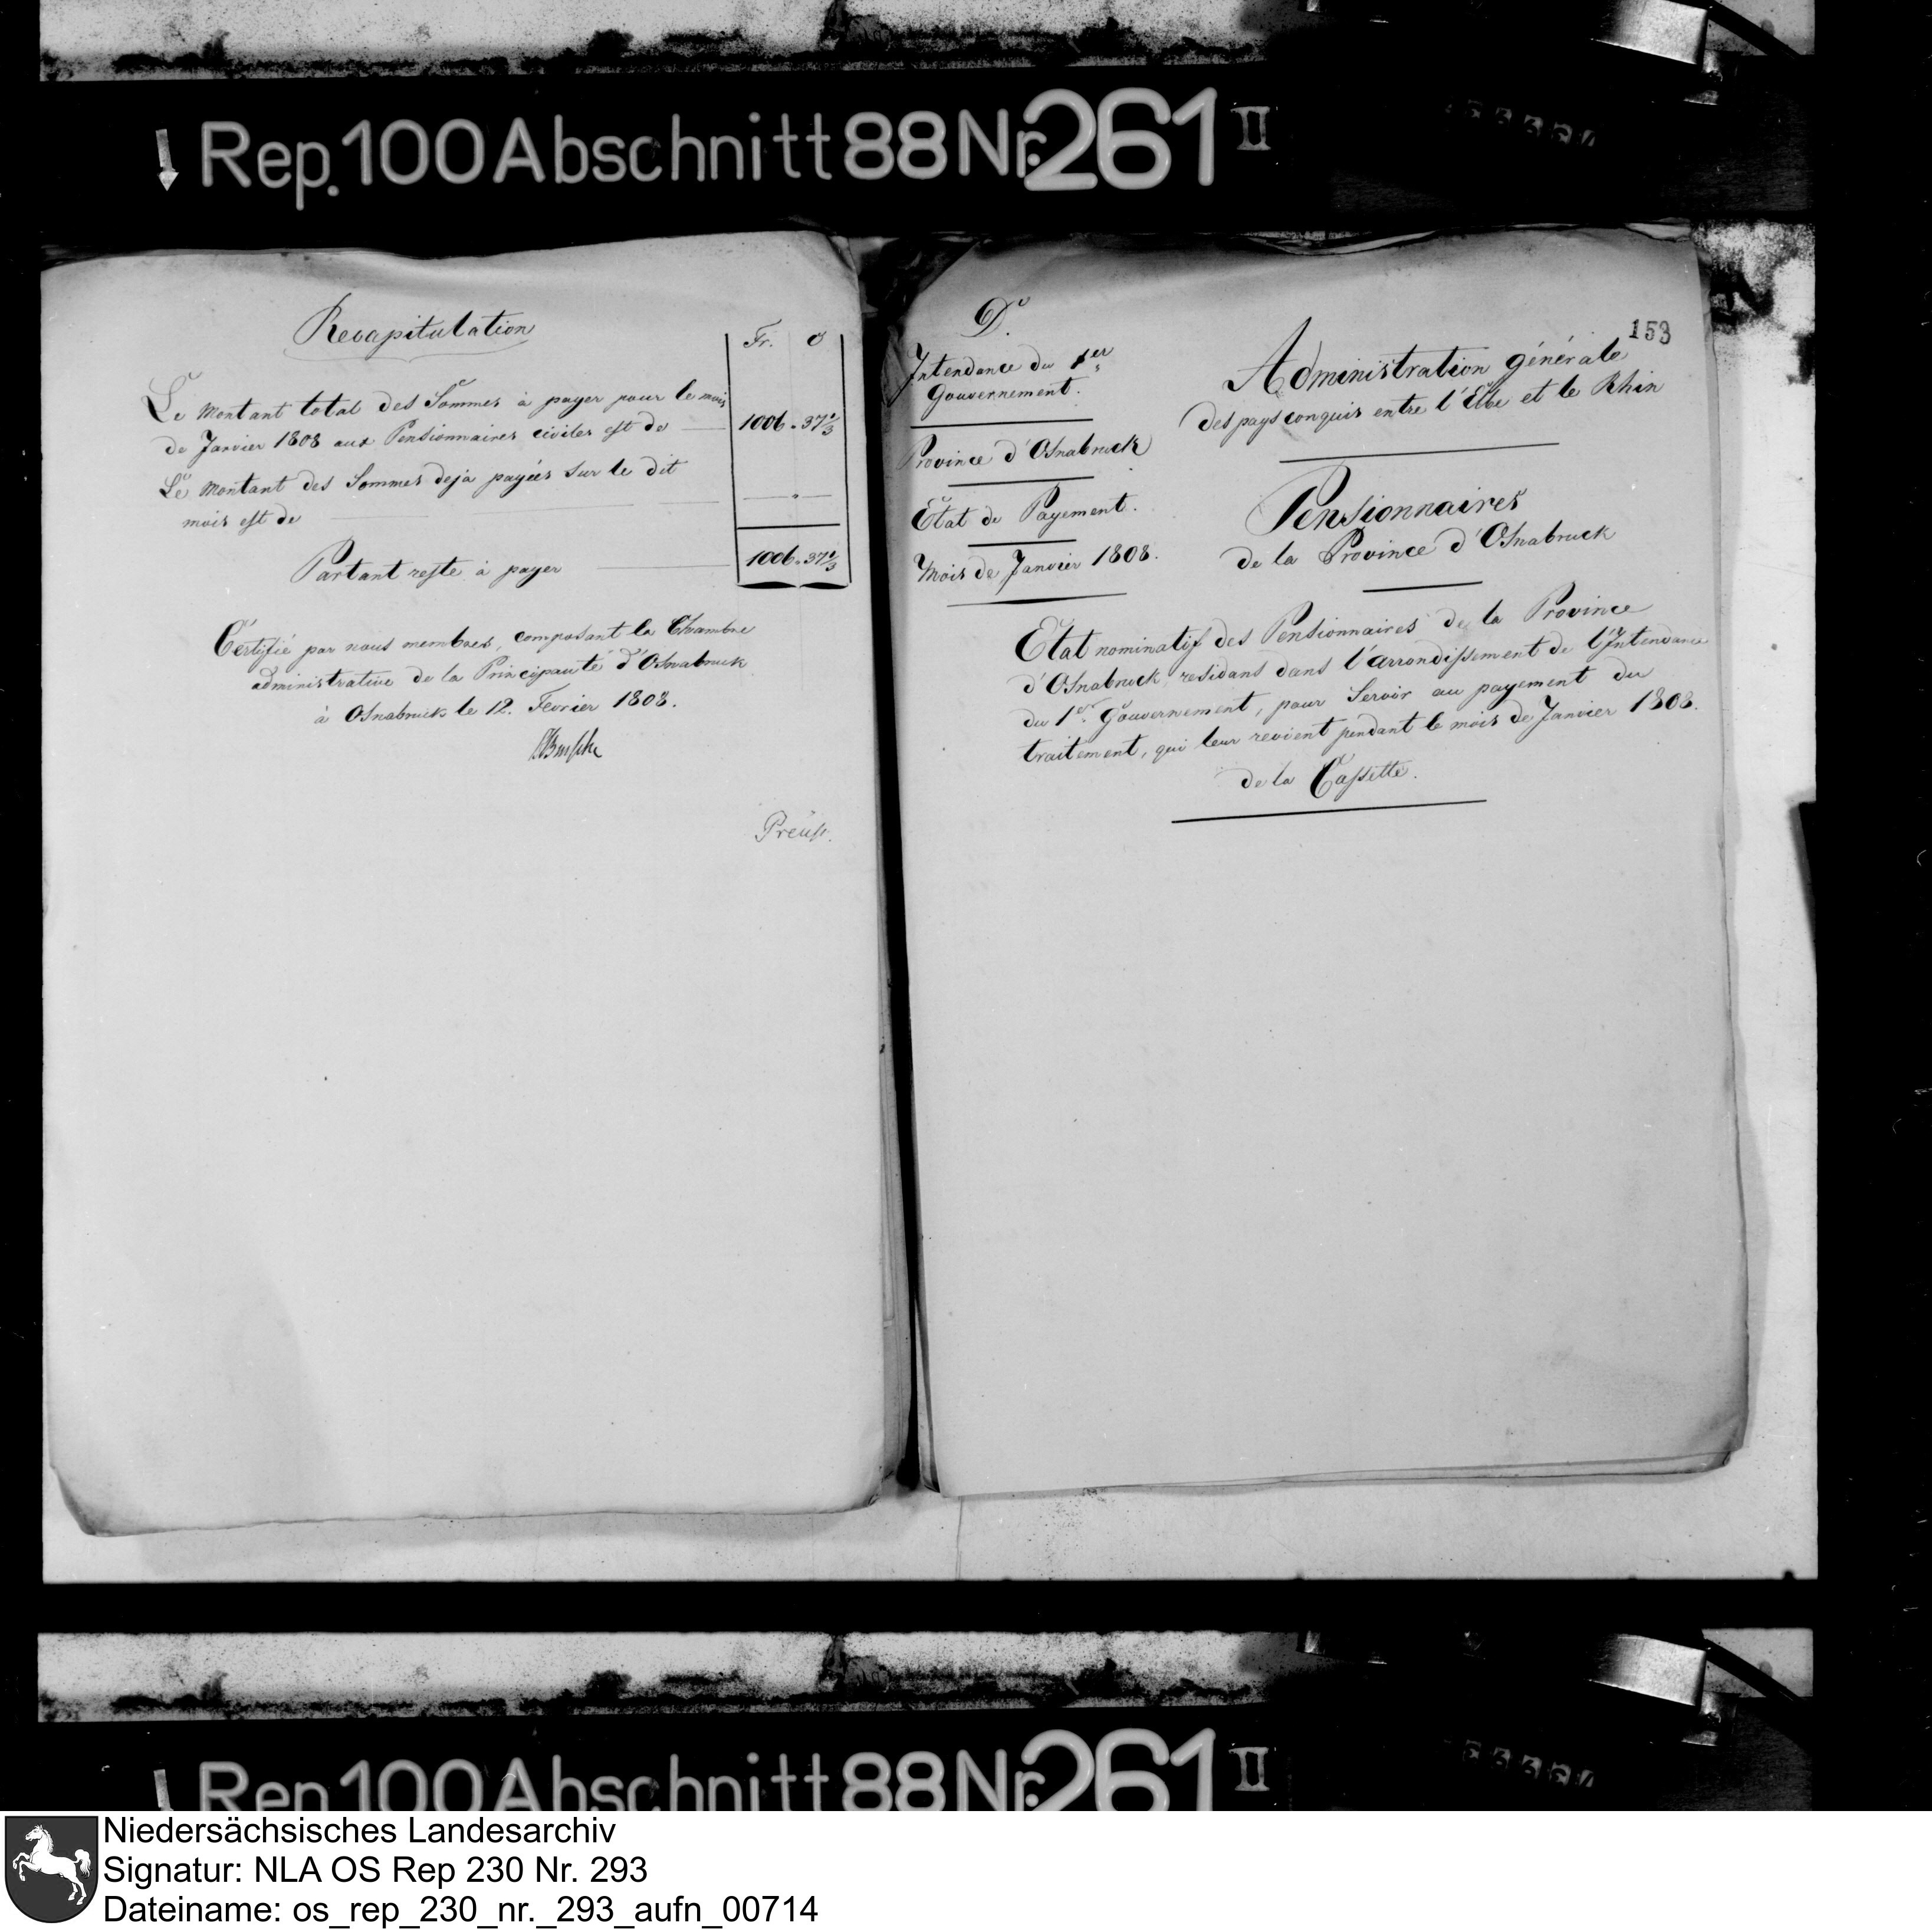 Rep. 100 Abschnitt 88 Nr. 261 II
Recapitulation
Fr. C
Le Montant total des Sommes à payer pour le mois
de Janvier 1808 aux Pensionnaires civiles est de 1006 . 37 1/3
Le Montant des Sommes deja payées sur le dit
mois est de
Partant reste à payer 1006 . 37 1/3
Certifié par nous membres, composant la Chambre
administrative de la Principauté d'Osnabruck
à Osnabruck le 12. Fevrier 1808.
Preuss.
D.
Intendance du 1er
Gouvernement.
Province d'Osnabruck
Etat de Payement.
Mois de Janvier 1808.
153
Administration générale
des pays conquis entre l'Elbe et le Rhin
Pensionnaires
de la Province d'Osnabruck
Etat nominatif des Pensionnaires de la Province
d'Osnabruck residans dans l'arrondissement de l'Intendance
du 1er Gouvernement, pour Servir au payement du
traitement, qui leur revient pendant le mois de Janvier 1808.
de la Cassette.
Rep. 100 Abschnitt 88 Nr. 261 II
Niedersächsisches Landesarchiv
Signatur: NLA OS Rep 230 Nr. 293
Dateiname: os_rep_230_nr._293_aufn_00714